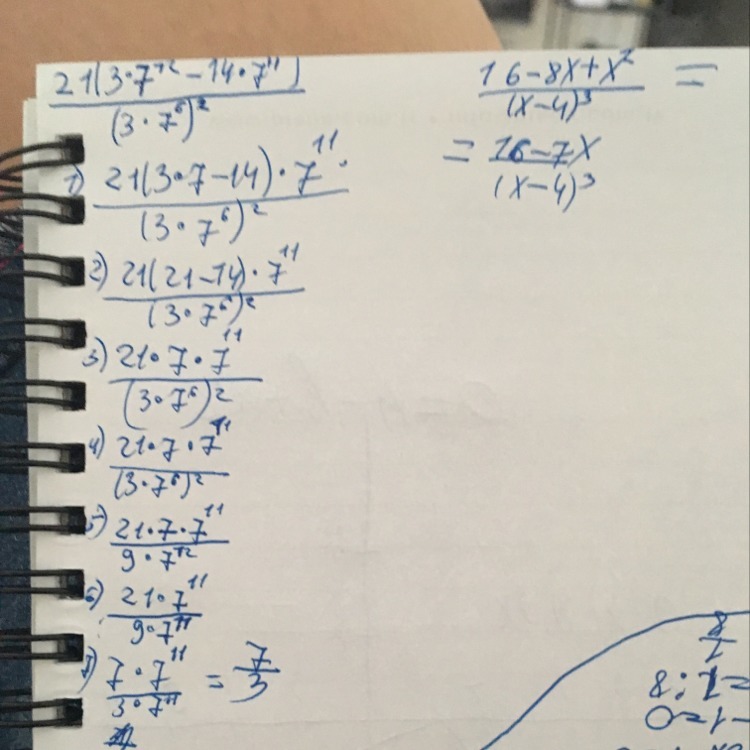 21(3·7¹² – 14·7¹¹) / (3·7⁶)²
1) 21(3·7–14)·7¹¹ / (3·7⁶)²
2) 21(21–14)·7¹¹ / (3·7⁶)²
3) 21·7·7¹¹ / (3·7⁶)²
4) 21·7·7¹¹ / (3·7⁶)²
5) 21·7·7¹¹ / 9·7¹²
6) 21·7¹¹ / 9·7¹¹
7) 7·7¹¹ / 3·7¹¹ = 7/3
16–8x+x² / (x–4)³ =
= 16–7x / (x–4)³